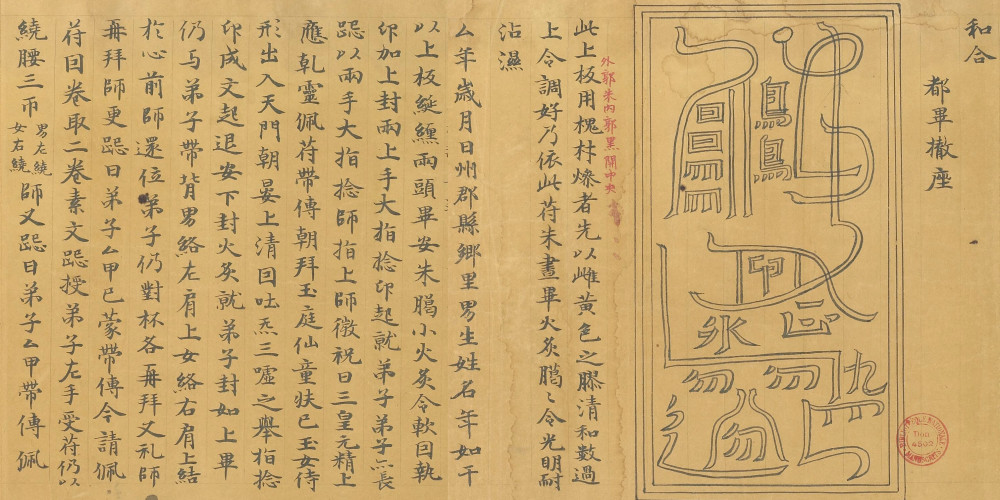 和合
都畢撤座
外郭朱內郭黑開中央
此上板用槐材燥者先以雌黃色之膠清和數過
上令調好乃依此苻朱畫畢火炙臈〻令光明耐
沾濕
厶年歲月日州郡縣鄉里男生姓名年如干
以上板綖纏兩頭畢安朱臈小火炙令軟回執
印加上封兩上手大指捻印起就弟子弟子長
跽以兩手大指捻師指上師微祝曰三皇元精上
應乹靈佩苻帶傳朝拜玉庭仙童扶已玉女侍
形出入天門朝晏上清回吐炁三噓之舉指捻
印成文起退安下封火炙就弟子封如上畢
仍与弟子帶背男絡左肩上女絡右肩上結
於心前師還位弟子仍對杯各再拜又礼師
再拜師更跽曰弟子厶甲已蒙帶傳今請佩
苻回卷取二卷素文跽授弟子左手受苻仍以
繞腰三帀男左繞女右繞師又跽曰弟子厶甲帶傳佩